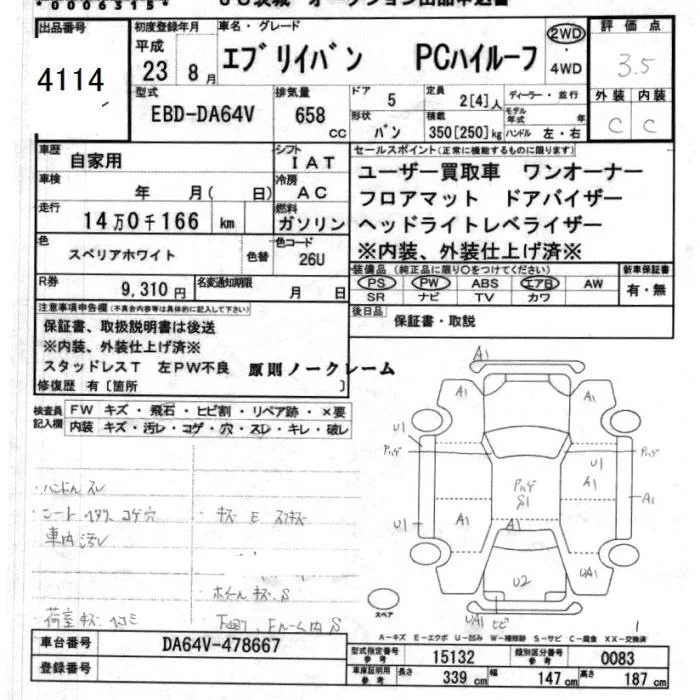 *0006315*
オークション出品申込書
出品番号
4114
初度登録年月
平成
23年 8月
車名・グレード
エブリイバン PCハイルーフ
2WD
・
4WD
評価点
3.5
外装 内装
C C
型式
EBD-DA64V
排気量
658
CC
ドア
5
定員
2[4]人
ディーラー・並行
形状
バン
積載
350[250]kg
モデル年式 年
ハンドル 左・右
車歴
自家用
シフト
IAT
車検
年 月( 日)
冷房
AC
走行
14万0千166 km
燃料
ガソリン
色
スペリアホワイト
色替
色コード
26U
R券
9,310円
名変通知期限
月 日
セールスポイント(正常に機能するものに限ります)
ユーザー買取車 ワンオーナー
フロアマット ドアバイザー
ヘッドライトレベライザー
※内装、外装仕上げ済※
装備品(純正品に限り○をつけてください)
PS PW ABS エアB AW
SR ナビ TV カワ
新車保証書
有・無
後日品
保証書・取説
注意事項申告欄(不具合内容等は具体的に記入して下さい)
保証書、取扱説明書は後送
※内装、外装仕上げ済※
スタッドレスT 左PW不良 原則ノークレーム
修復歴 有〔箇所 〕
検査員記入欄
FW キズ・飛石・ヒビ割・リペア跡・×要
内装 キズ・汚レ・コゲ・穴・スレ・キレ・破レ
ハンドル スレ
シート コゲ穴
キズ E
車内 汚レ
ホイール キズ、S
荷室 キズ
下回り、Fルーム内 S
A1
A1 A1
U1
Pハゲ Pハゲ
U1
A1
Pハゲ
S1
A1
U1
A1
A1
U2
UA1
UA1 ヒビ
スペア
1
A-キズ E-エクボ U-凹み W-補修跡 S-サビ C-腐食 XX-交換済
車台番号
DA64V-478667
登録番号
型式指定番号
参考
15132
類別区分番号
参考
0083
車庫証明用
参考
長さ
339 cm
幅
147 cm
高さ
187 cm